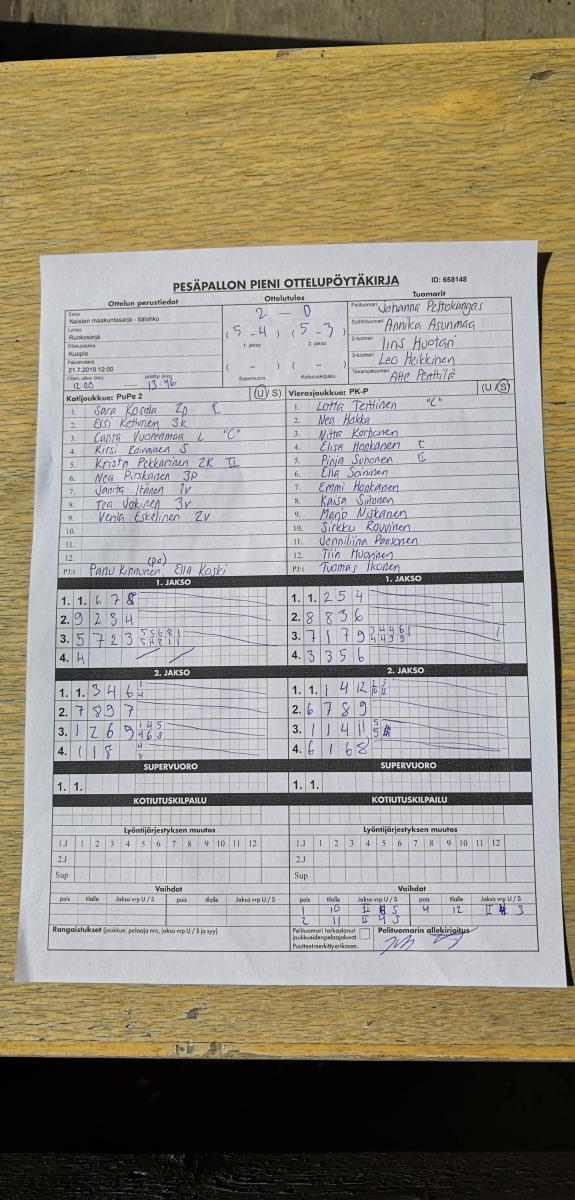 PESÄPALLON PIENI OTTELUPÖYTÄKIRJA ID: 658148
Ottelun perustiedot Ottelutulos Tuomarit
Sarja
Naisten maakuntasarja - Itälohko
Lohko
Runkosarja
Ottelupaikka
Kuopio
Päivämäärä
21.7.2019 12:00
Ottelu alkoi (klo) päättyi (klo)
12.00 13.46
2 - 0
(5 - 4) (5 - 3)
1. jakso 2. jakso
( - ) ( - )
Supervuoro Kotiutuskilpailu
Pelituomari Johanna Peltokangas
Syöttötuomari Annika Asunmaa
2-tuomari Iiris Huotari
3-tuomari Leo Heikkinen
Takarajatuomari Atte Penttilä
Kotijoukkue: PuPe 2 (U/S)
1. Sara Kosola 2p I
2. Essi Kettunen 3k
3. Vuorenmaa L "C"
4. Kirsi S
5. Krista Pekkarinen 2K II
6. Nea Pirskanen 3p
7. Janita Itänen 1v
8. Tea Jokinen 3v
9. Venla Eskelinen 2v
10.
11.
12. (pa)
PJ:t Panu Kinnunen, Ella Koski
Vierasjoukkue: PK-P (U/S)
1. Lotta Terttinen "C"
2. Nea Hakka
3. MiTTa Korhonen
4. Elisa Honkanen I
5. Pinja Suhonen II
6. Ella Soininen
7. Emmi Honkanen
8. Kaisa Siitonen
9. Marjo Niskanen
10. Sirkku Rouvinen
11. Jenniliina Paasonen
12. Tiin Huovinen
PJ:t Tuomas Ikonen
1. JAKSO 1. JAKSO
1. 1. 6 7 8
2. 9 2 3 4
3. 5 7 2 3
4. 4
1. 1. 2 5 4
2. 8 8 3 6
3. 7 1 7 9
4. 3 3 5 6
2. JAKSO 2. JAKSO
1. 1. 3 4 6
2. 7 8 9 7
3. 1 2 6 9
4. 1 1 8
1. 1. 1 4 12
2. 6 7 8 9
3. 1 1 4 11
4. 6 1 6 8
SUPERVUORO SUPERVUORO
1. 1. 1. 1.
KOTIUTUSKILPAILU KOTIUTUSKILPAILU
Lyöntijärjestyksen muutos Lyöntijärjestyksen muutos
1.J 1 2 3 4 5 6 7 8 9 10 11 12 1.J 1 2 3 4 5 6 7 8 9 10 11 12
2.J 2.J
Sup Sup
Vaihdot Vaihdot
pois tilalle Jakso vrp U / S pois tilalle Jakso vrp U / S pois tilalle Jakso vrp U / S pois tilalle Jakso vrp U / S
1 10 II S 4 12 II 3
2 11 II 4 S
Rangaistukset (joukkue, pelaaja nro, jakso vrp U / S ja syy)
Pelituomari tarkastanut
joukkueidenpelaajaluvat.
Puutteet merkitty erikseen.
Pelituomarin allekirjoitus